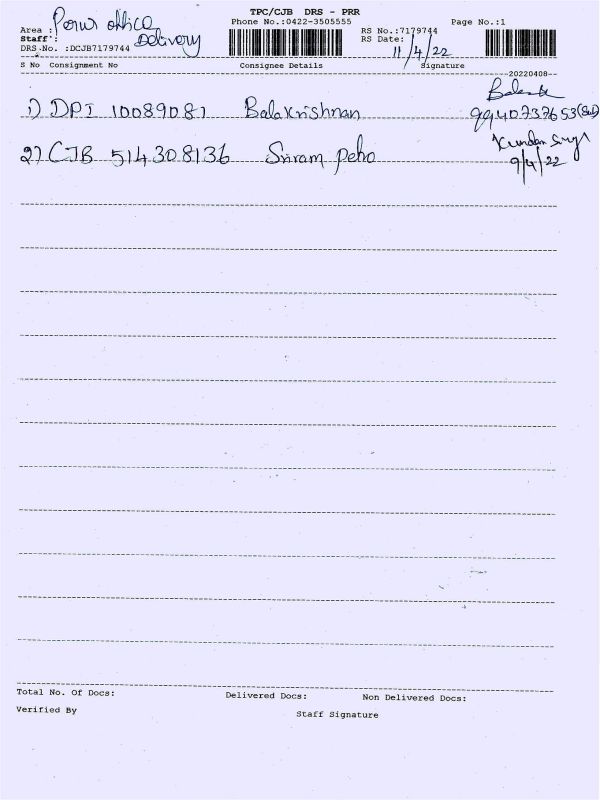 TPC/CJB DRS - PRR
Phone No.:0422-3505555
Page No.:1
Area : office
Staff : Delivery
DRS No. :DCJB7179744
RS No.:7179744
RS Date: 11/4/22
S No Consignment No Consignee Details Signature
20220408
1) DPI 10089081 Balakrishnan
9940737653
2) CJB 514308136 Sriram
9/4/22
Total No. Of Docs: Delivered Docs: Non Delivered Docs:
Verified By Staff Signature